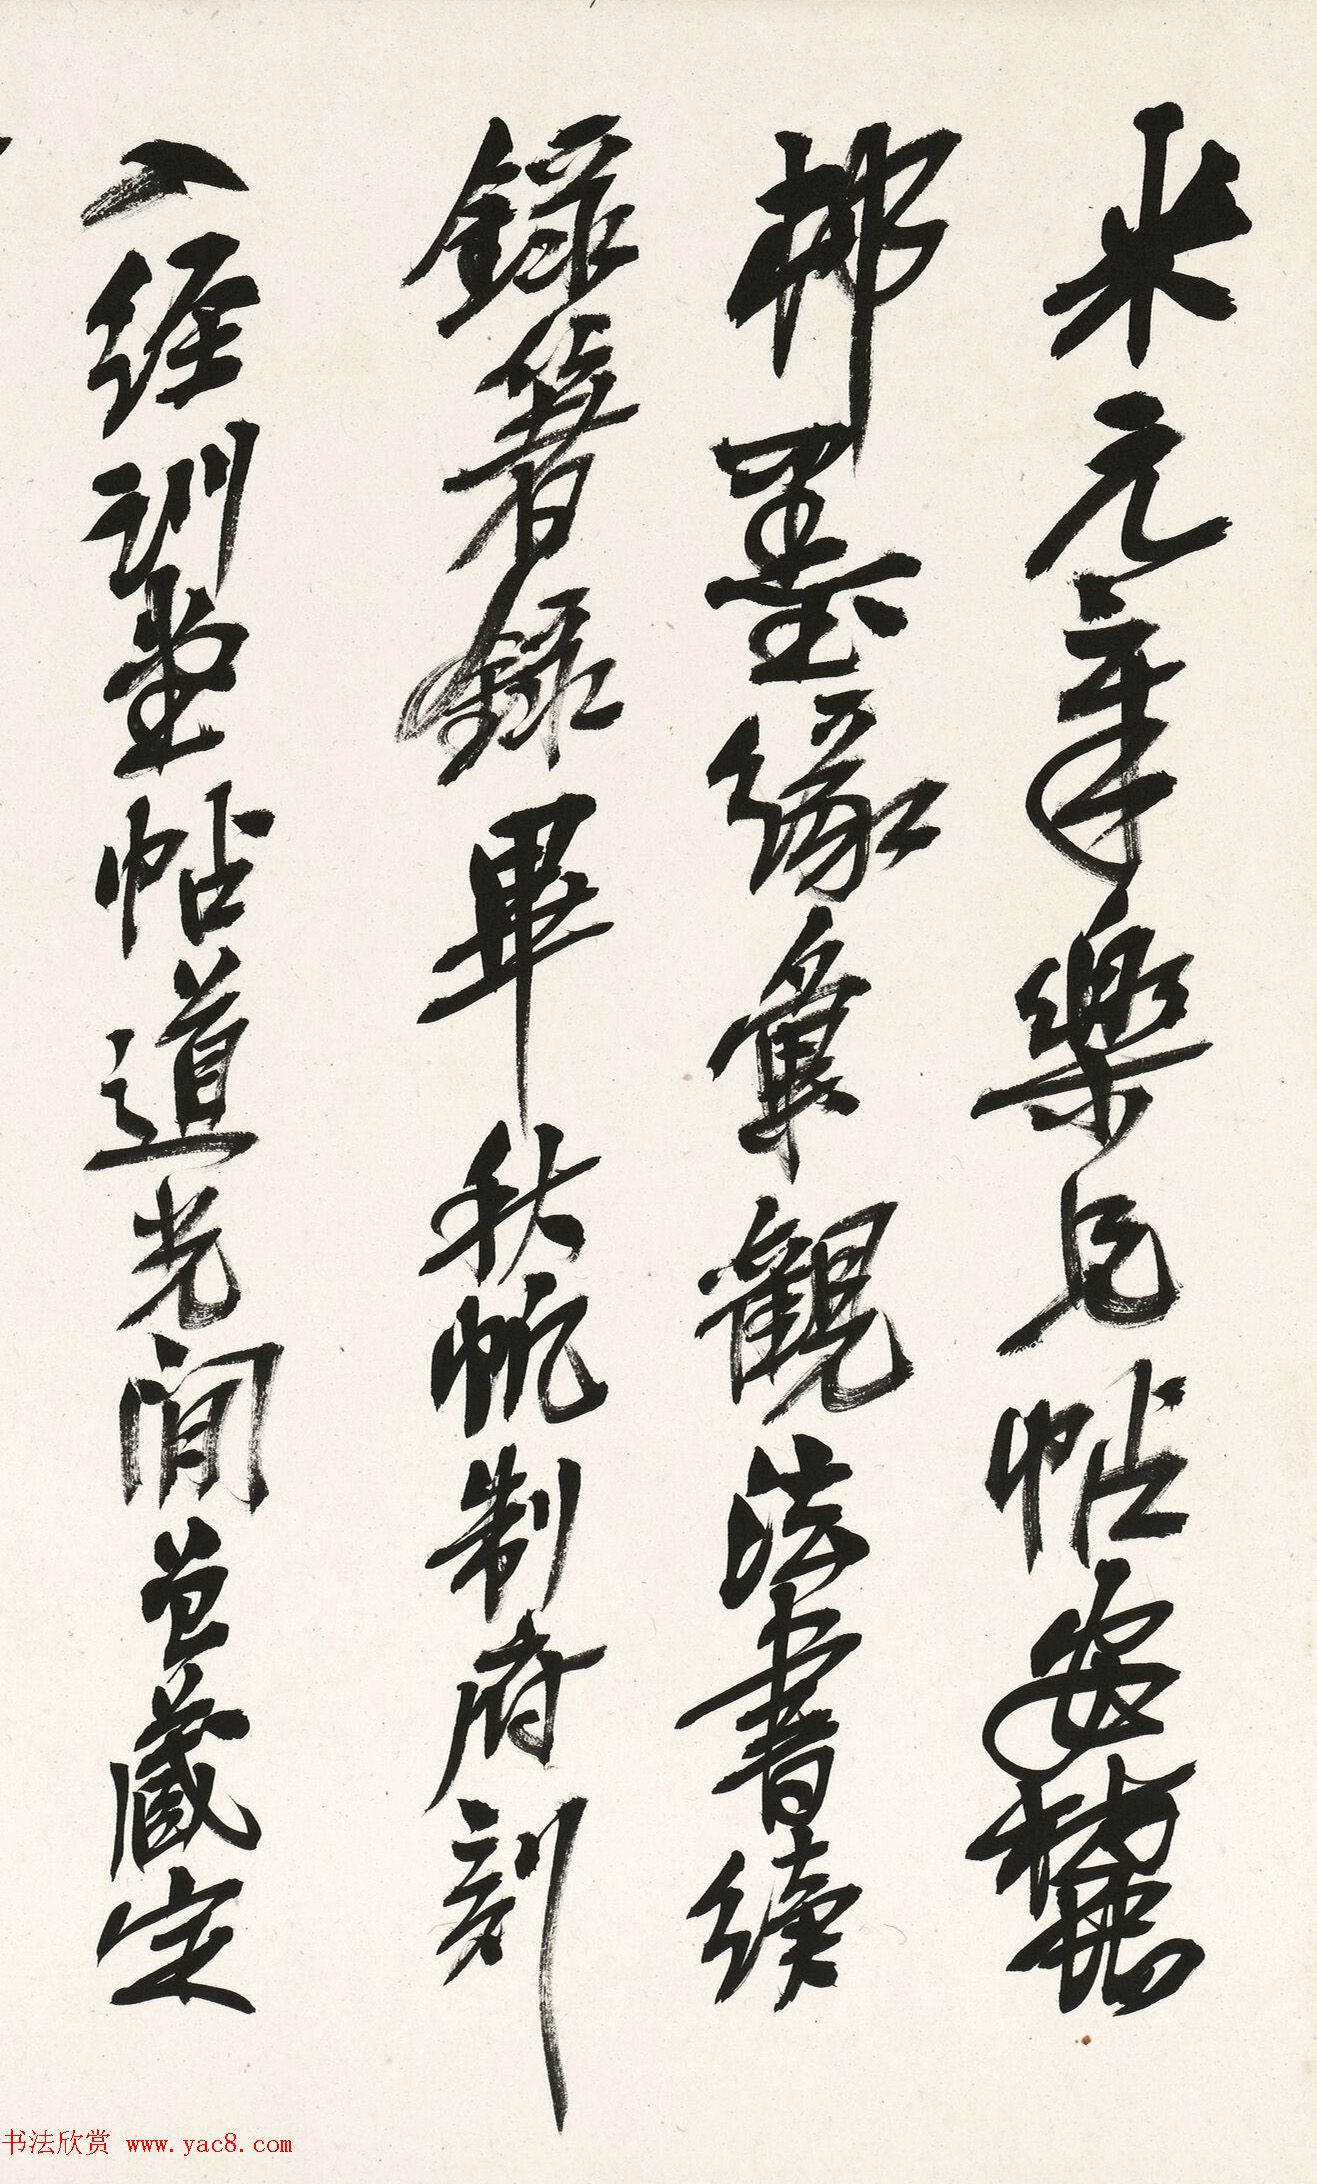 米元章樂兄帖安麓
邨墨緣彙觀法書續
錄著錄畢秋帆制府刻
入經訓堂帖道光間曾藏定
书法欣赏 www.yac8.com